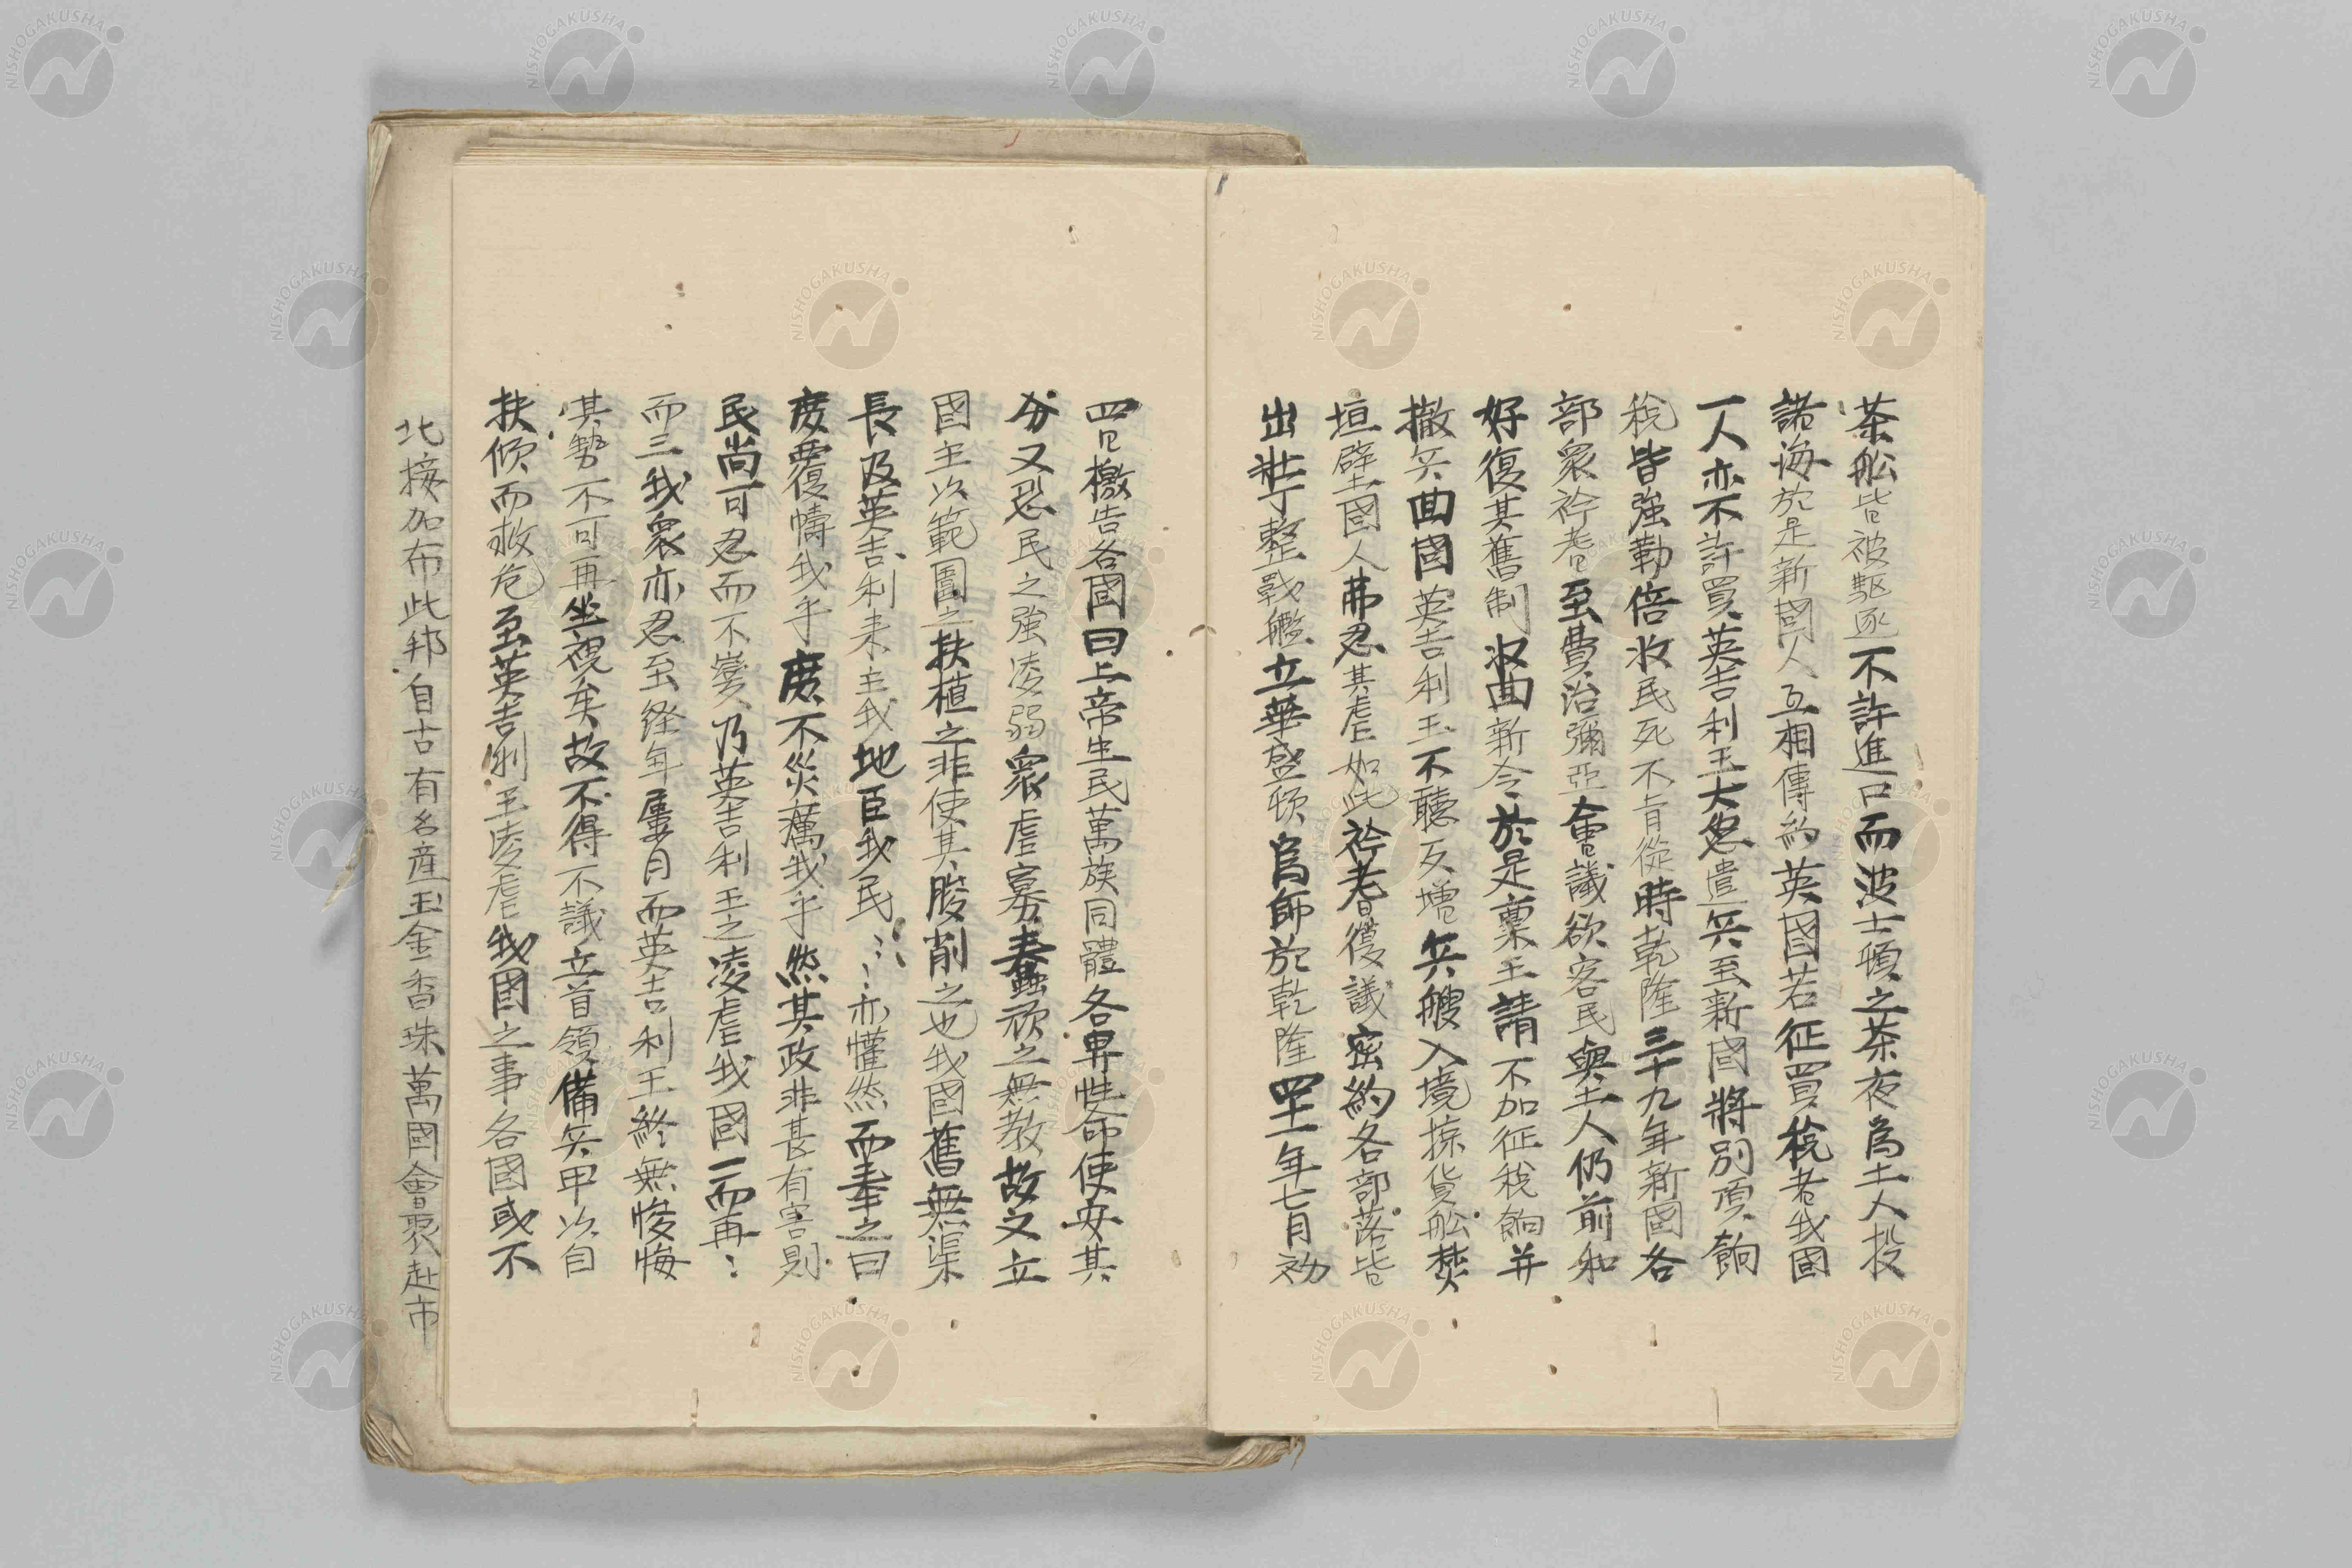 茶舩皆被驅逐不許進口而波士頓之茶夜為土人投
諸海於是新國人互相傳約英國若征買稅者我國
一人亦不許買英吉利王大怒遣兵至新國將別項餉
稅皆強勒倍收民死不肯從時乾隆三十九年新國各
部衆衿耆至費治彌亞會議欲客民與土人仍前和
好復其舊制收曲新令於是稟王請不加征稅餉并
撤兵曲國英吉利王不聽反增兵艘入境掠貨舩焚
垣壁土國人弗忍其虐如此衿耆復議密約各部落皆
出壯丁整戰艦立華盛頓為師於乾隆四十一年七月初
四日檄告各國曰上帝生民萬族同體各專性命使安其
分又恐民之強凌弱衆虐寡蠢頑之無教故又立
國主以範圍之扶植之非使其朘削之也我國舊無渠
長及英吉利来主我地臣我民ミミ亦懽然而奉之曰
庻覆幬我乎庻不災癘我乎然其政非甚有害則
民尚可忍而不變乃英吉利王之凌虐我國一而再ミ
而三我衆亦忍至経年屢月而英吉利王終無悛悔
其勢不可再坐視矣故不得不議立首領備兵甲以自
扶傾而救危至英吉利王凌虐我國之事各國或不
北接加布此邦自古有名產玉金香珠萬國會聚赴市
NISHOGAKUSHA